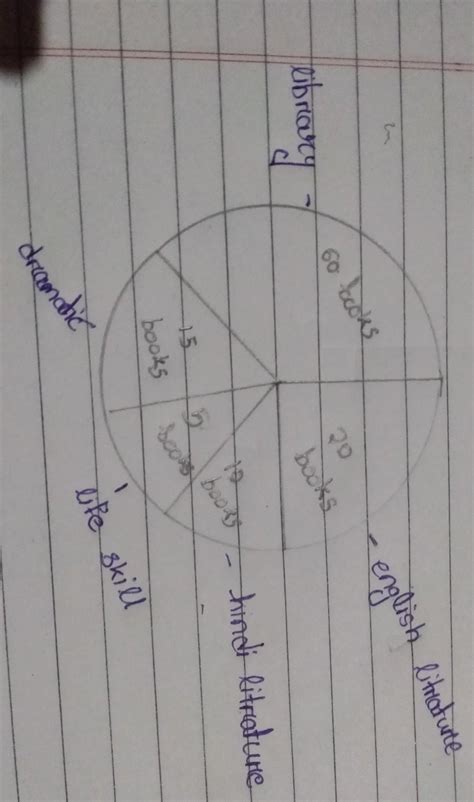 library -
60 books
20
books
- english litrature
10
books
- hindi litrature
5
books
- life skill
15
books
dramatic